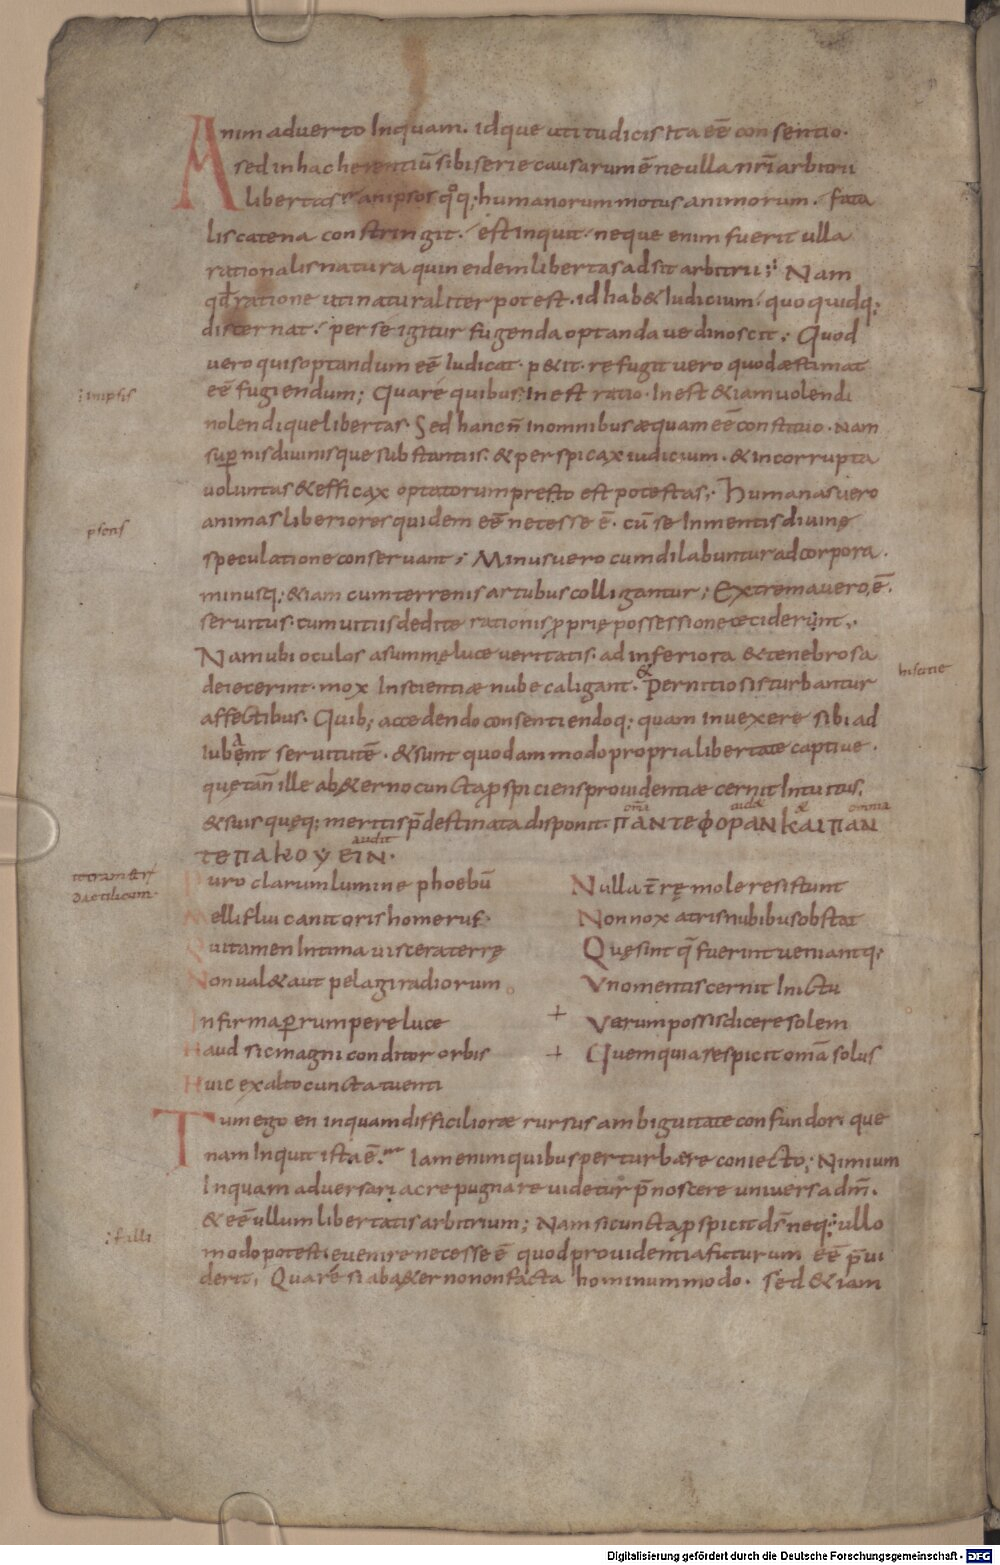 Animadverto Inquam. idque uti tu dicis Ita eē consentio.
sed in hac herentiū sibi serie causarum ē ne ulla nr̄i arbitrii
libertas? an ipsos qͦq; humanorum motus animorum. fata
lis catena constringit. est inquit. neque enim fuerit ulla
rationalis natura quin eidem libertas adsit arbitrii; Nam
qd̄ ratione uti naturaliter potest. id hab& Iudicium. quo quidq;
discernat. per se igitur fugenda optandave dinoscit; Quod
vero quis optandum eē Iudicat. p&it. refugit vero quod æstimat
eē fugiendum; Quare quibus Inest ratio. Inest &iam volendi
nolendique libertas. Sed hanc n̄ In omnibus æquam eē constituo. Nam
sup̱nis divinisque substantiis. & perspicax iudicium. & incorrupta
voluntas & efficax optatorum presto est potestas; Humanas vero
animas liberiores quidem eē necesse ē. cū se In mentis divinę
speculatione conservant; Minus vero cum dilabuntur ad corpora.
minusq; &iam cum terrenis artubus colligantur; Extrema vero ē.
servitus. cum vitiis deditę rationis p̱prię possessione ceciderunt.
Nam ubi oculos a summę luce veritatis. ad inferiora & tenebrosa
deiecerint. mox Inscientiæ nube caligant. & perniciosis turbantur
affectibus. Quib; accedendo consentiendoq; quam invexere sibi ad
Iubant servitutē. & sunt quodammodo propria libertate captive.
quę tam̄ ille ab &erno cuncta p̱spiciens providentiæ cernit Intuitus.
& suis quęq; meritis p̄destinata disponit. ΠΑΝΤ ΕΦΟΡΑΝ ΚΑΙ ΠΑΝ
omīa audæ & omnia
ΤΕΠΑΚΟΥΕΙΝ.
audit
Puro clarum lumine phoebū
Melliflui canit oris homerus.
Qui tamen Intima viscera terrę
Non val& aut pelagi radiorum
Infirma p̱rumpere luce
Haud sic magni conditor orbis
Huic ex alto cuncta tuenti
Nulla t̄rę mole resistunt
Non nox atris nubibus obstat
Quę sint q̄ fuerint veniantq;
Vno mentis cernit In ictu
Verum possis dicere solem
Quem quia respicit omā solus
Tum ego en inquam difficiliore rursus ambiguitate confundor. que
nam Inquit ista ē. Iam enim quibus perturbære coniecto; Nimium
Inquam adversari ac repugnare videtur p̄noscere universa dm̄.
& eē ullum libertatis arbitrium; Nam si cuncta p̱spicit ds̄ neq; ullo
modo potest evenire necesse ē quod providentia futurum eē p̄vi
derit, Quare si ab &erno non facta hominum modo. sed &iam
inipsis
hiscitie
dactilicum
falli